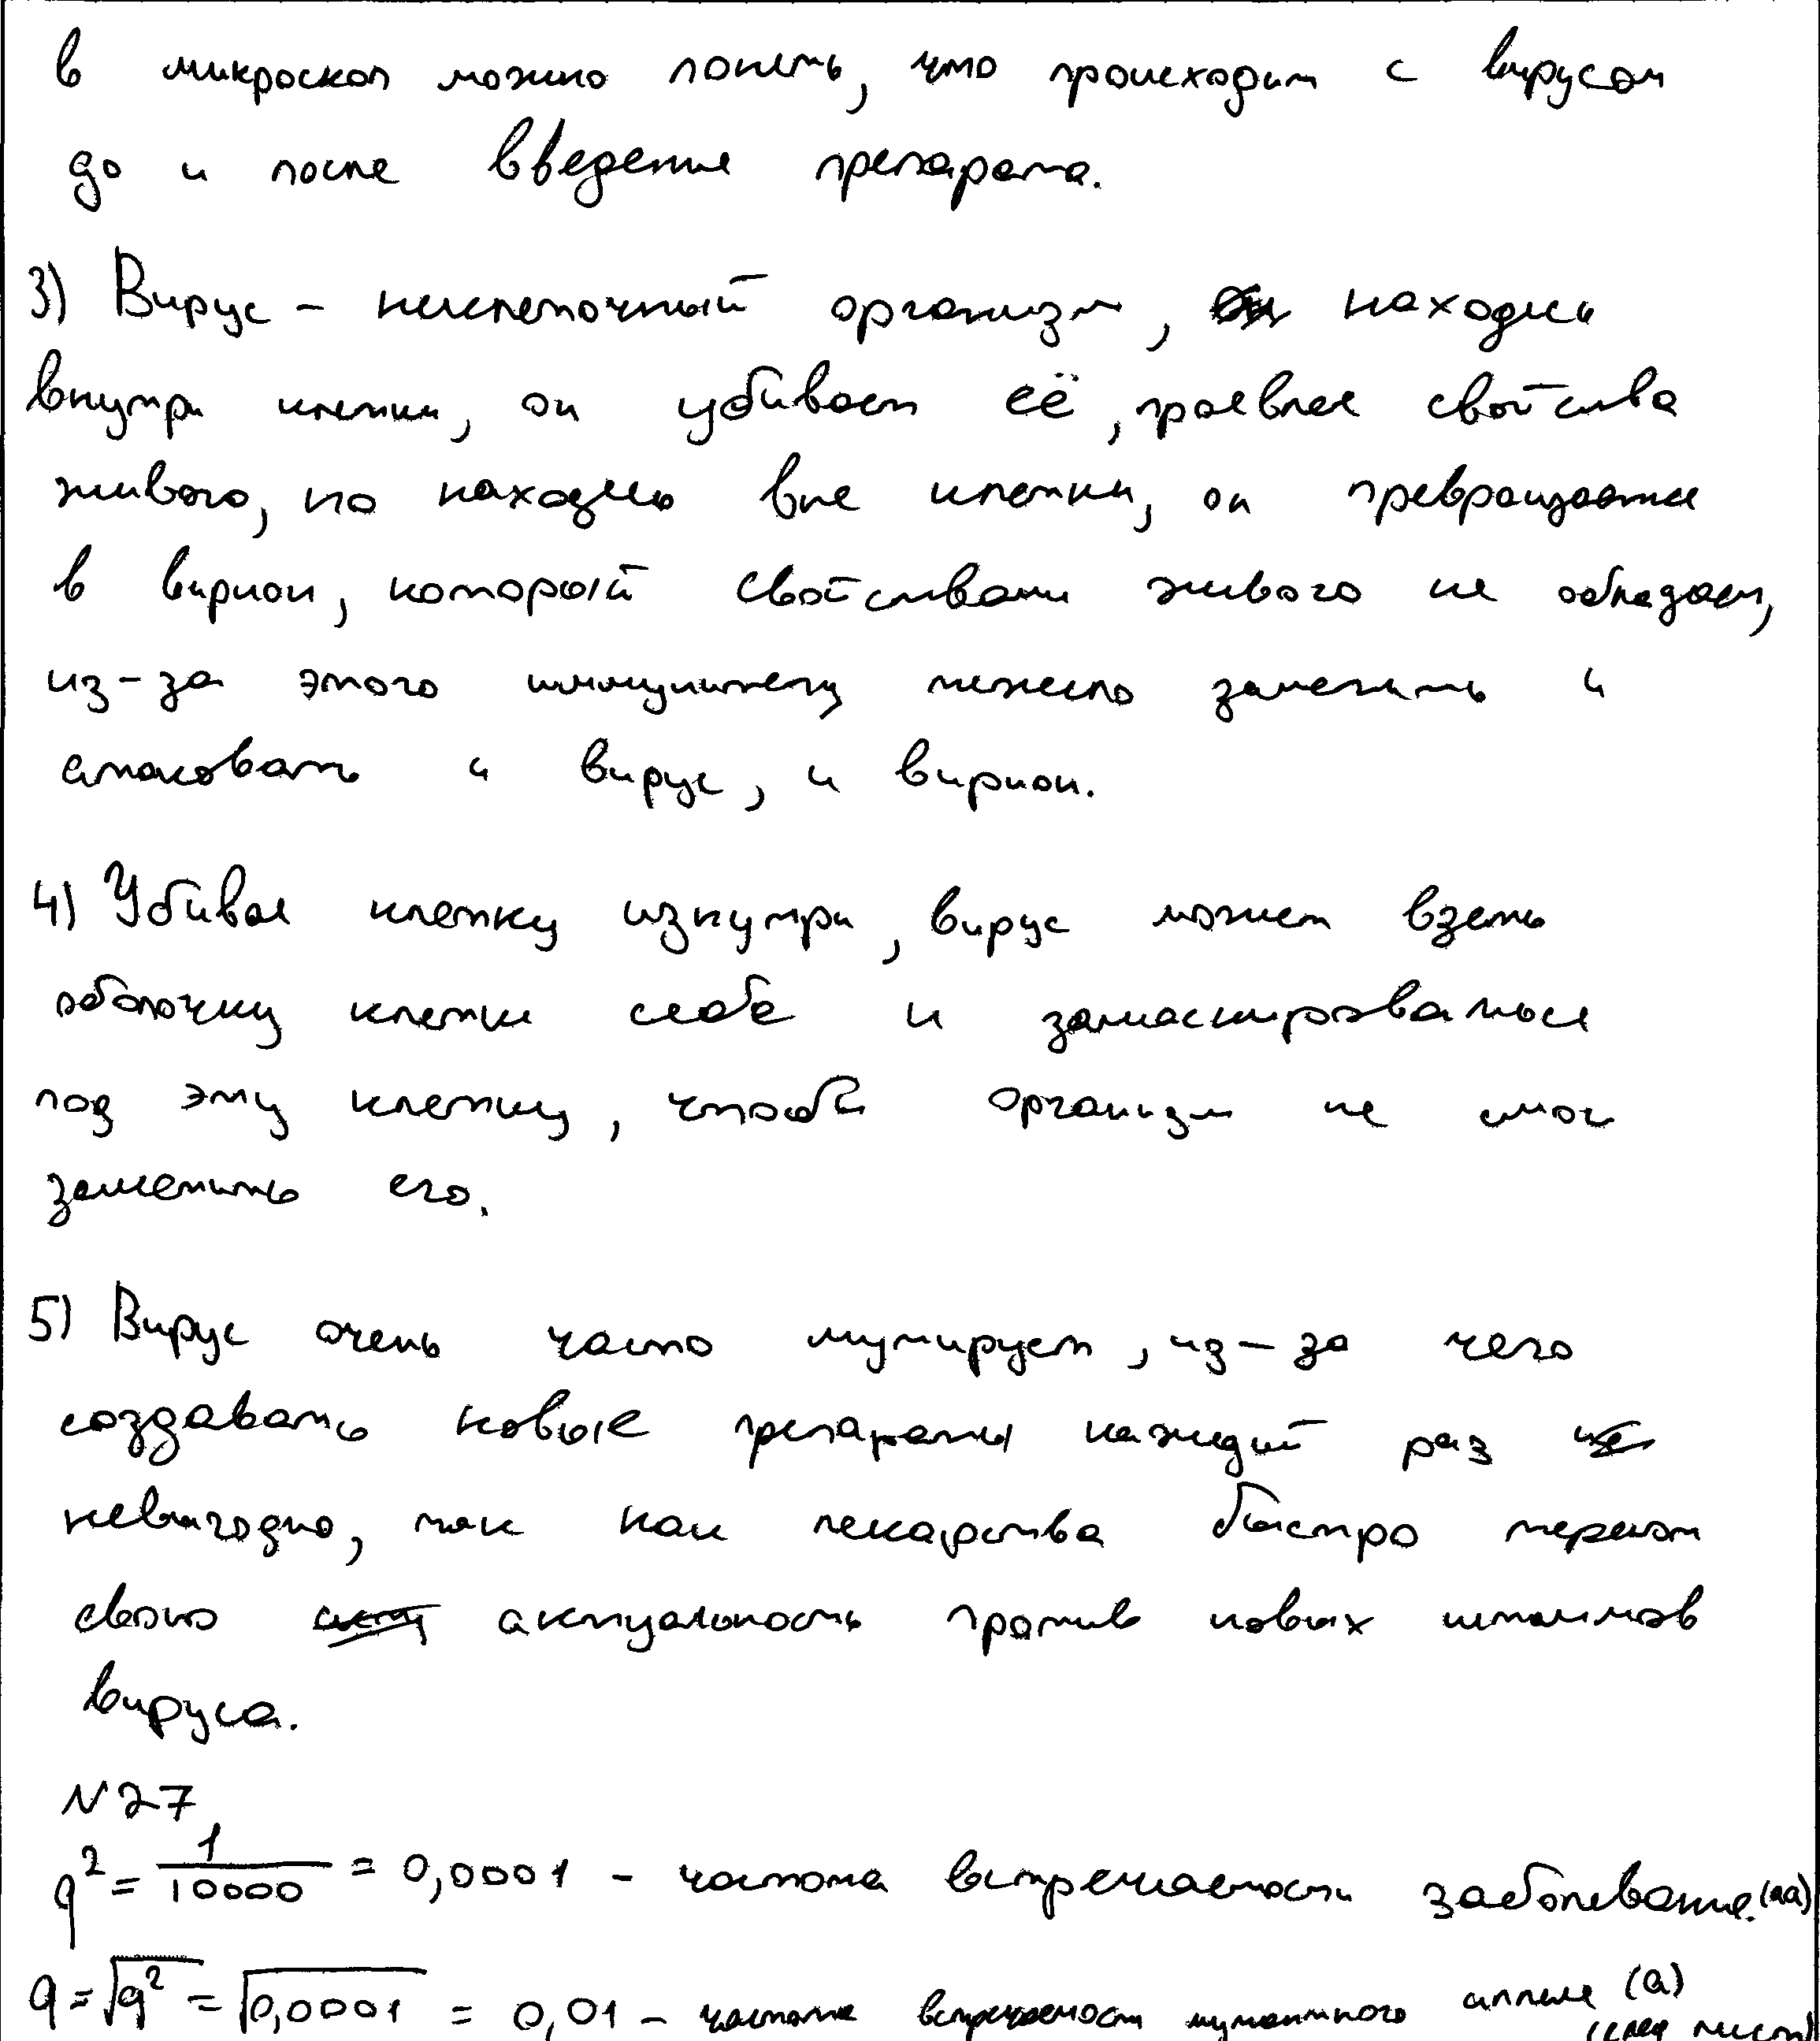 в микроскоп можно понять, что происходит с вирусом
до и после введения препарата.
3) Вирус – неклеточный организм, находясь
внутри клетки, он убивает её, проявляя свойства
живого, но находясь вне клетки, он превращается
в вирион, который свойствами живого не обладает,
из-за этого иммунитету тяжело заметить и
атаковать и вирус, и вирион.
4) Убивая клетку изнутри, вирус может взять
оболочку клетки себе и замаскироваться
под эту клетку, чтобы организм не смог
заметить его.
5) Вирус очень часто мутирует, из-за чего
создавать новые препараты каждый раз
невыгодно, так как лекарства быстро теряют
свою актуальность против новых штаммов
вируса.
N27
q² = 1/10000 = 0,0001 – частота встречаемости заболевания. (aa)
q = √q² = √0,0001 = 0,01 – частота встречаемости мутантного аллеля (a)
(след лист)